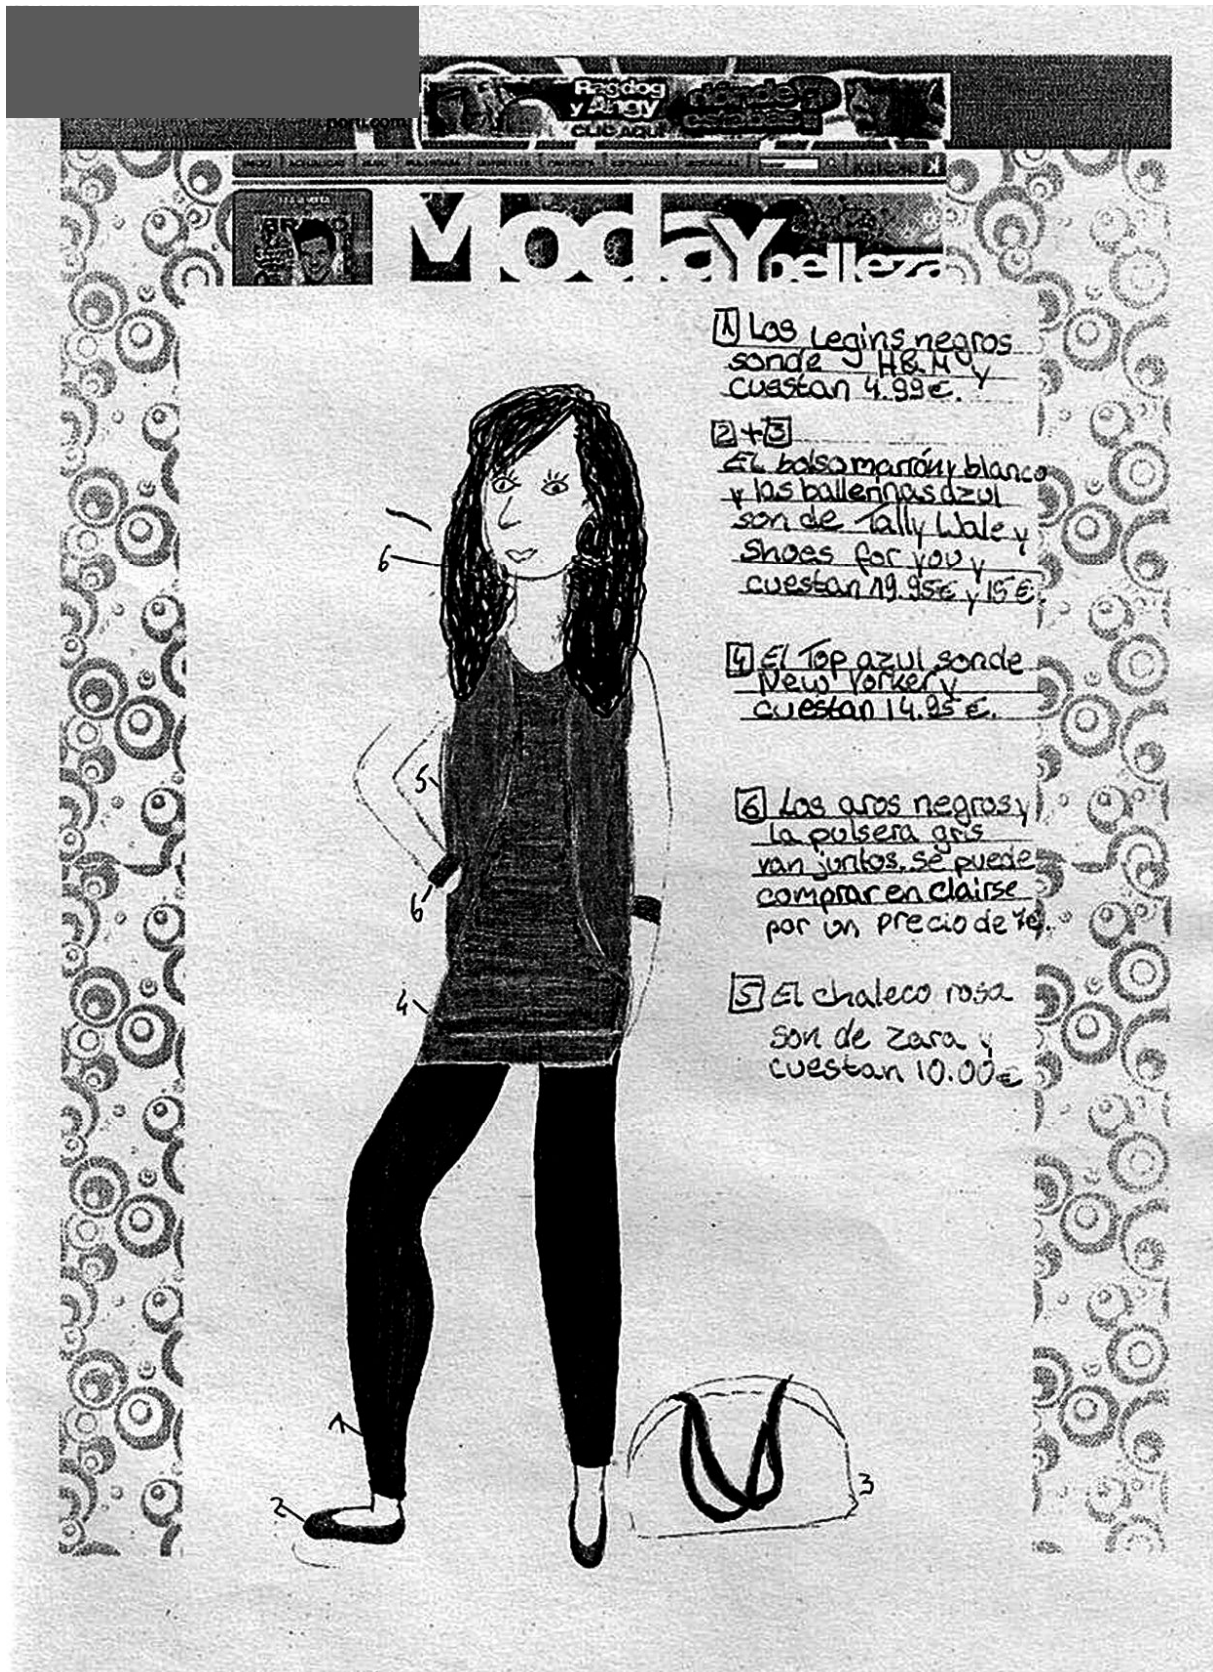 porti.com
Ragdog
y Angy
CLIC AQUÍ
Moda Y belleza
1 Los Legins negros
sonde H&M y
cuestan 4.99€.
2+3
EL bolso marrón y blanco
y las ballerinas azul
son de Tally Wale y
Shoes for you y
cuestan 19.95€ y 15€.
4 El Top azul sonde
New Yorker y
cuestan 14.95€.
6 Los aros negros y
la pulsera gris
van juntos. se puede
comprar en clairse
por un precio de 7€.
5 El chaleco rosa
son de zara y
cuestan 10.00€
6
5
6
4
1
2
3